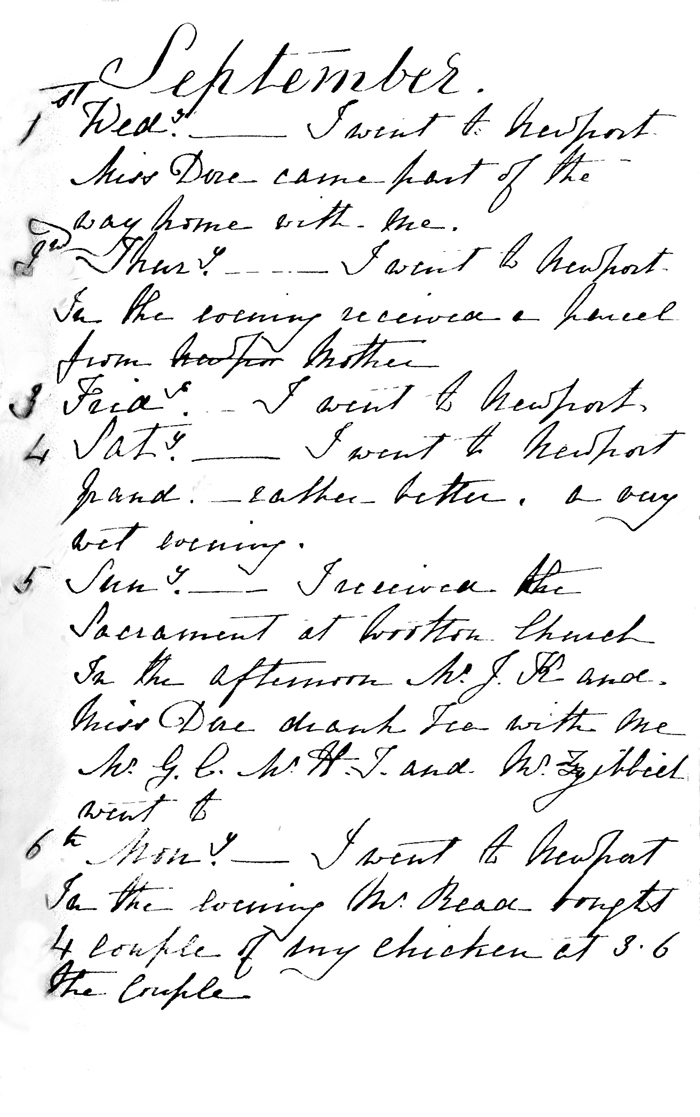 September.
1st Wedy. — I went to Newport
Miss Dore came part of the
way home with me.
2nd Thury. — I went to Newport
In the evening received a parcel
from Newpor Mother
3 Fridy. — I went to Newport.
4 Saty. — I went to Newport
frand. — rather better. a very
wet evening.
5 Suny. — I received the
Sacrament at Wootton Church
In the afternoon Mr J. K and
Miss Dore drank Tea with me
Mr G. C. Mr H. J. and Mr
went to
6th Mony. — I went to Newport
In the evening Mr Read bought
4 couple of my chicken at 3.6
the couple